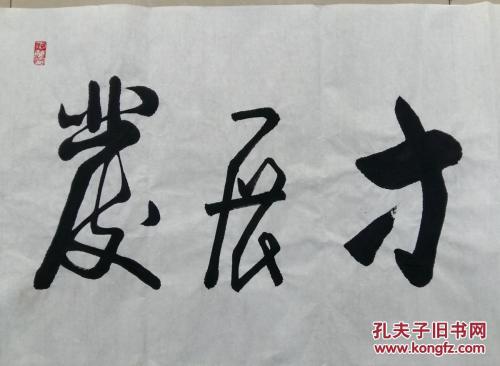 發展才
孔夫子旧书网
www.kongfz.com